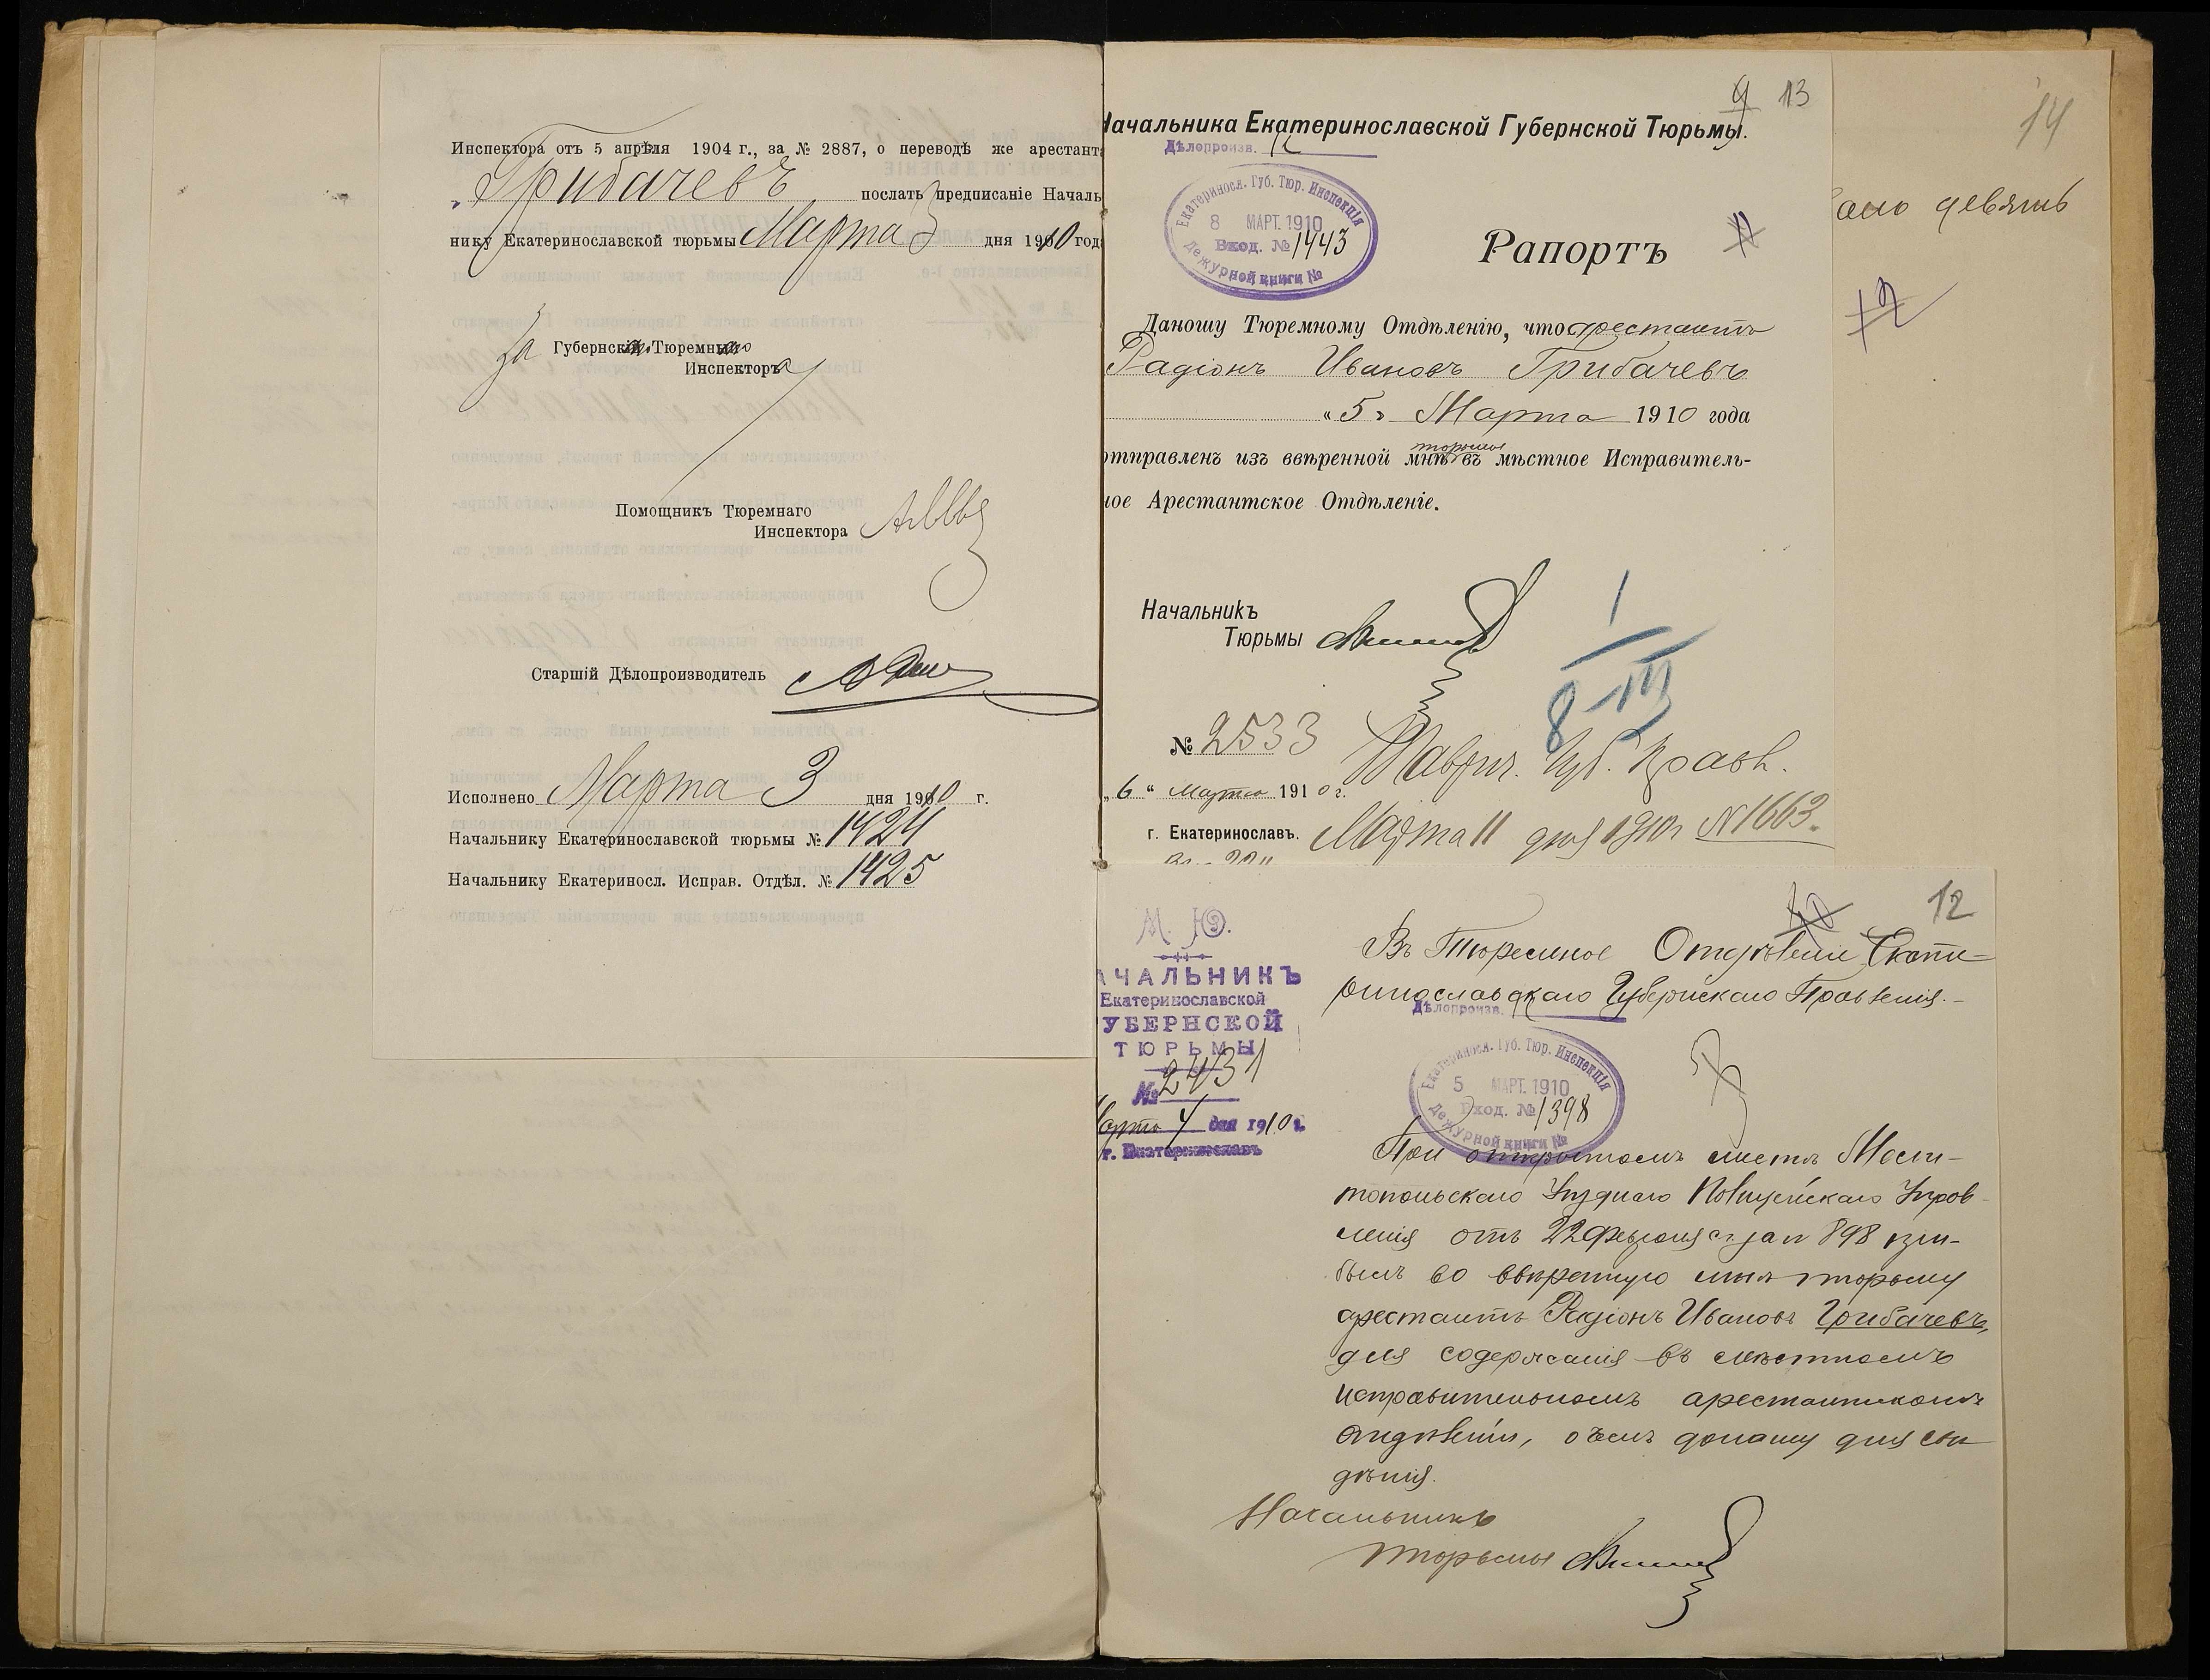 Инспектора отъ 5 апрѣля 1904 г., за № 2887, о переводѣ же арестанта
Грибачевъ послать предписаніе Началь-
нику Екатеринославской тюрьмы Марта 3 дня 1910 года
За Губернскаго Тюремнаго
Инспектора
Помощникъ Тюремнаго
Инспектора
Старшій Дѣлопроизводитель
Исполнено Марта 3 дня 1910 г.
Начальнику Екатеринославской тюрьмы № 1424
Начальнику Екатериносл. Исправ. Отдѣл. № 1425
9 13
Начальника Екатеринославской Губернской Тюрьмы.
Дѣлопроизв.
Екатериносл. Губ. Тюр. Инспекція
8 МАРТ. 1910
Вход. № 1443
Дежурной книги №
Рапортъ
Даношу Тюремному Отдѣленію, что арестантъ
Радіонъ Ивановъ Грибачевъ
«5» Марта 1910 года
отправленъ изъ ввѣренной мнѣ тюрьмы въ мѣстное Исправитель-
ное Арестантское Отдѣленіе.
Начальникъ
Тюрьмы
I
8-III
№ 2533
Таврич. Губ. Правл.
„6“ Марта 1910 г.
г. Екатеринославъ.
Марта 11 дня 1910 г № 1663.
14
девять
12
12
М. Ю.
НАЧАЛЬНИКЪ
Екатеринославской
ГУБЕРНСКОЙ
ТЮРЬМЫ
№ 2431
Марта 4 дня 1910 г.
г. Екатеринославъ
Въ Тюремное Отдѣленіе Екате-
ринославскаго Губернскаго Правленія.-
Дѣлопроизв.
Екатериносл. Губ. Тюр. Инспекція
5 МАРТ. 1910
Вход. № 1398
Дежурной книги №
При открытомъ листѣ Мели-
топольскаго Уѣзднаго Полицейскаго Управ-
ленія отъ 22 Февраля с.г за № 898 при-
былъ во ввѣренную мнѣ тюрьму
арестантъ Радіонъ Ивановъ Грибачевъ,
для содержанія въ мѣстномъ
исправительномъ арестантскомъ
отдѣленіи, о чемъ доношу для свѣ-
дѣнія.
Начальникъ
тюрьмы